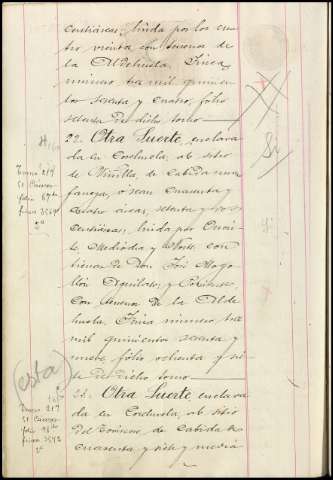 centiáreas; linda por los cua-
tro vientos con terrenos de
la Aldehuela. Finca
número tres mil quinien-
tos sesenta y cuatro, folio
setenta de dicho tomo
22. Otra Suerte, enclava
da en Corchuela, al sitio
de de cabida una
fanega, ó sean cuarenta y
cuatro áreas, setenta y dos
centiáreas, linda por Orien-
te, Mediodia y Norte, con
tierras de Don José Mogo-
llón Aguilar, y Poniente
con terrenos de la Alde
huela. Finca número tres
mil quinientos sesenta y
nueve, folio ochenta y
de dicho tomo
23. Otra Suerte, enclava
da en Corchuela, al sitio
del de cabida de
cuarenta y siete y media
Tomo 217
folio 87
finca 3569
2ª
(esta)
Tomo 217
folio
finca 3572
2ª
Si